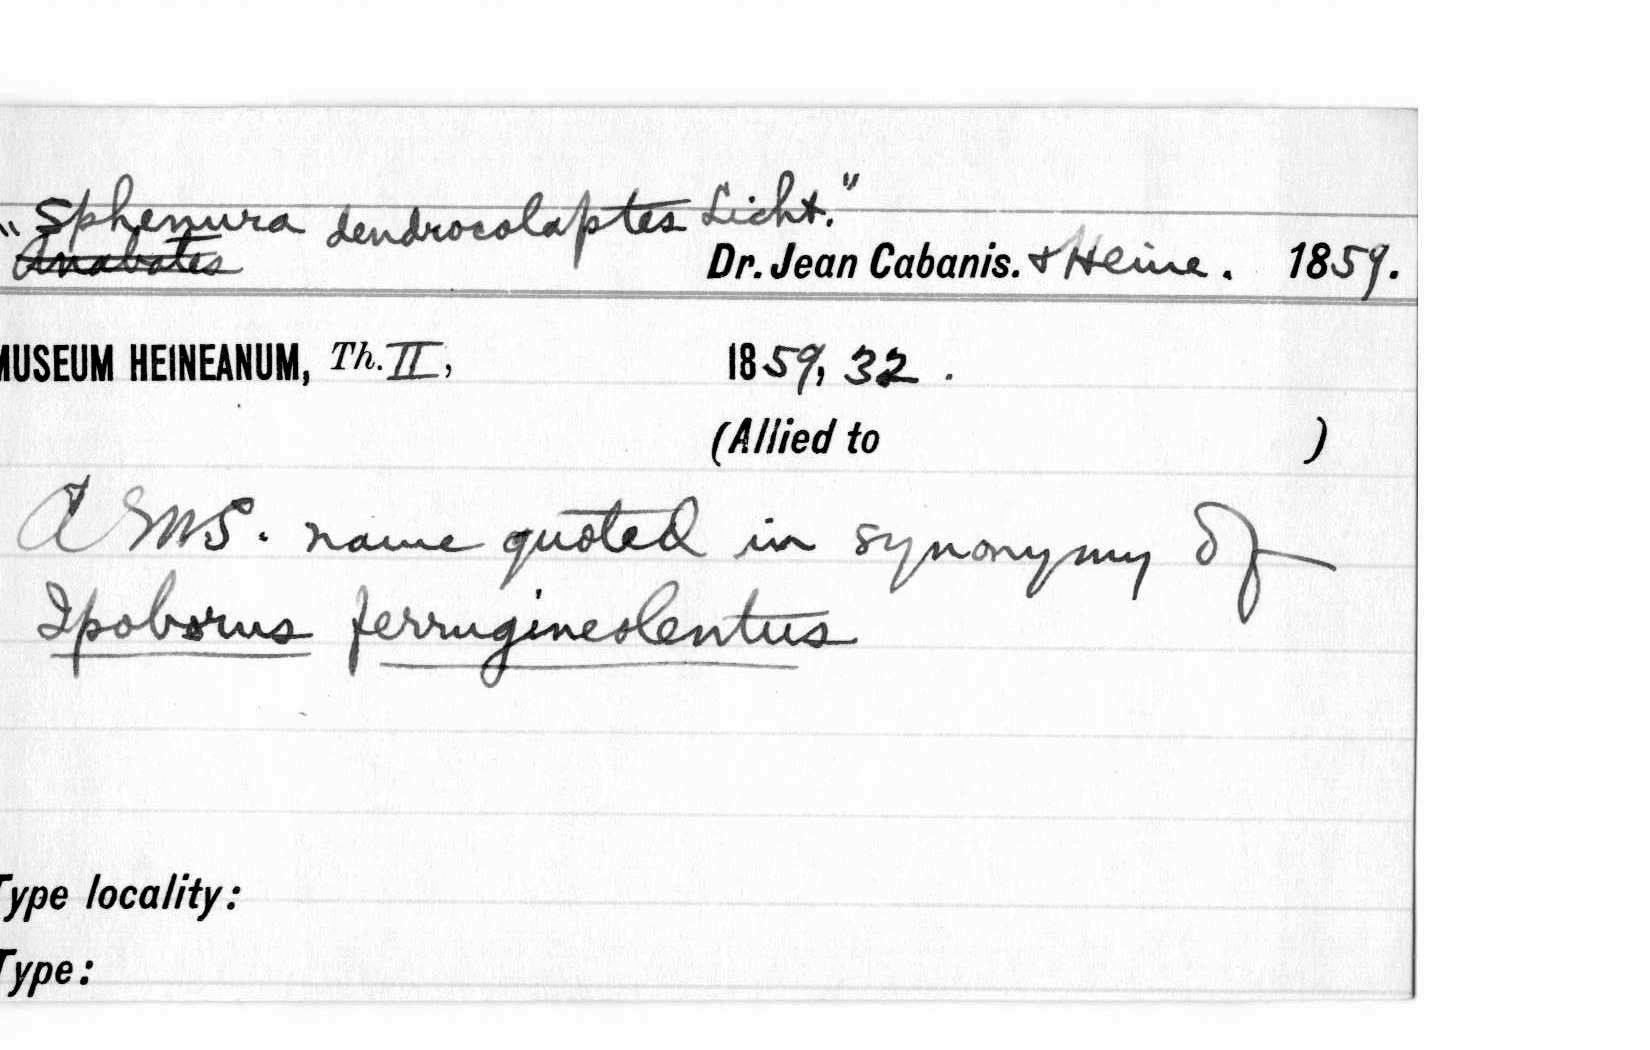 "Sphenura dendrocolaptes Licht."
Anabates
Dr. Jean Cabanis. & Heine. 1859.
MUSEUM HEINEANUM, Th. II, 1859, 32.
(Allied to )
A MS. name quoted in synonymy of
Ipoborus ferrugineolentus
Type locality:
Type: